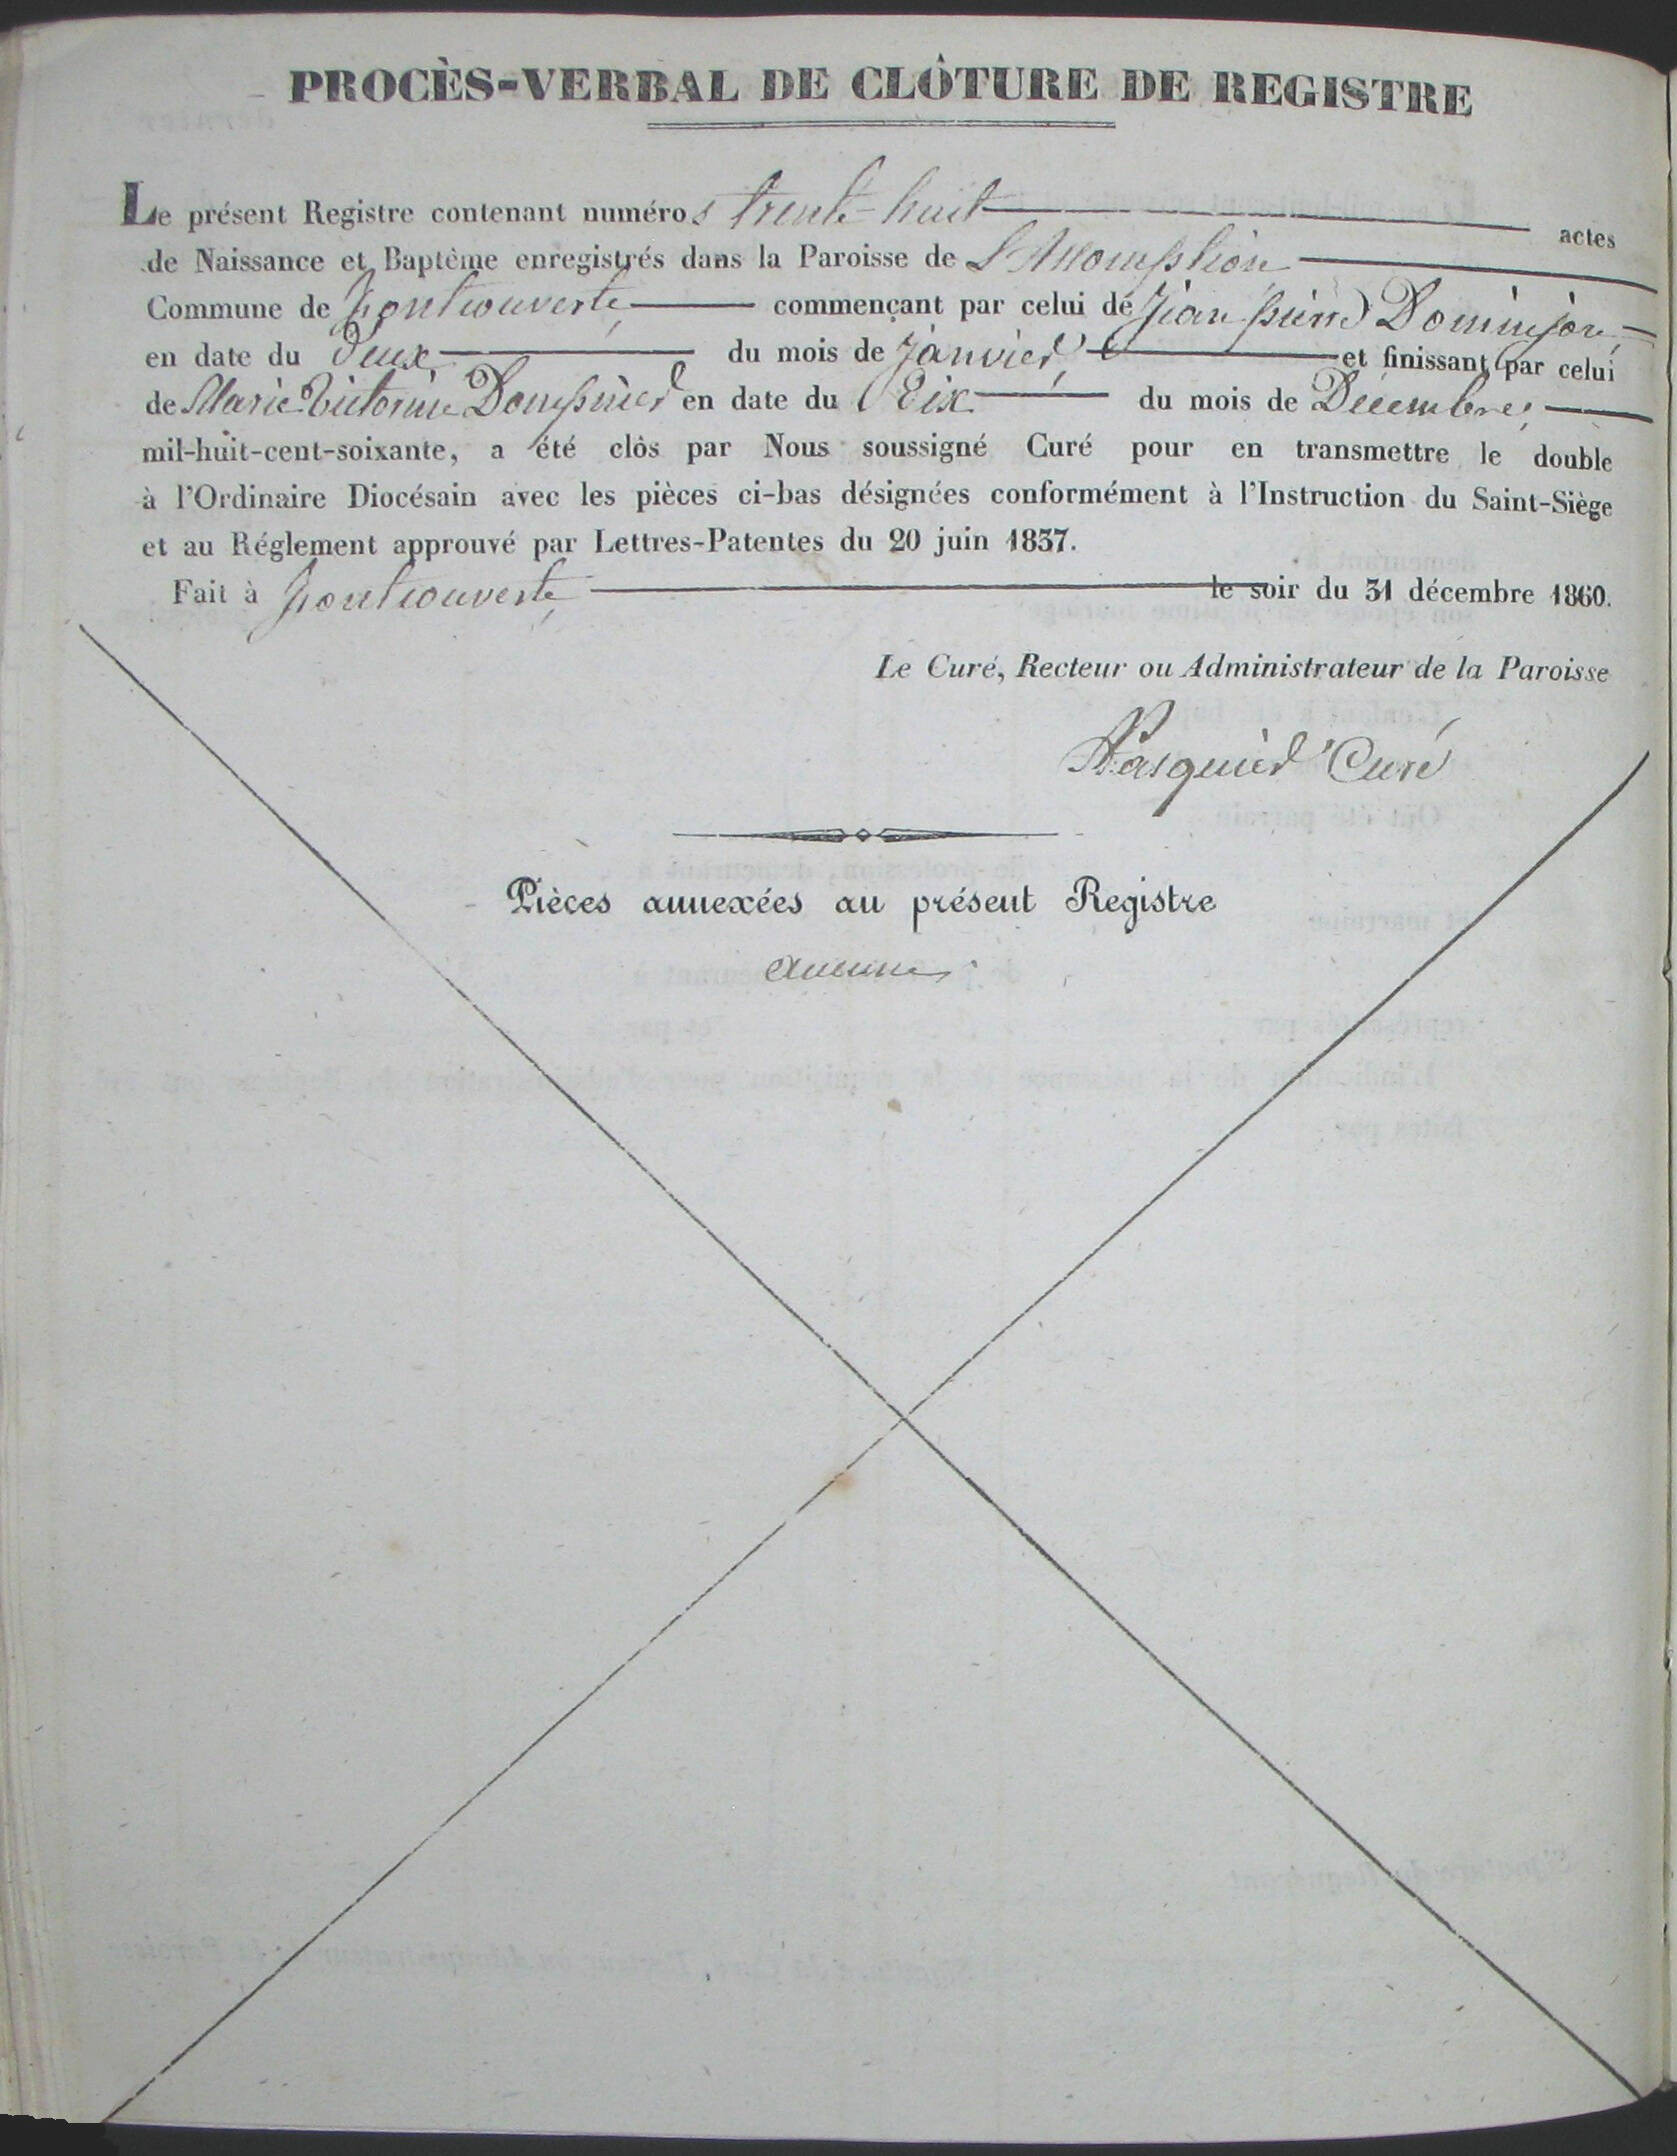 PROCÈS-VERBAL DE CLÔTURE DE REGISTRE
Le présent Registre contenant numéros trente-huit actes
de Naissance et Baptème enregistrés dans la Paroisse de L'Assomption
Commune de Montcouverte, commençant par celui de Jean pierre Dominjon,
en date du Deux du mois de Janvier, et finissant par celui
de Marie Victorine Dompnier en date du Dix du mois de Décembre,
mil-huit-cent-soixante, a été clòs par Nous soussigné Curé pour en transmettre le double
à l'Ordinaire Diocésain avec les pièces ci-bas désignées conformément à l'Instruction du Saint-Siège
et au Réglement approuvé par Lettres-Patentes du 20 juin 1837.
Fait à Montcouverte, le soir du 31 décembre 1860.
Le Curé, Recteur ou Administrateur de la Paroisse
Pasquier Curé
Pièces annexées au présent Registre
aucune